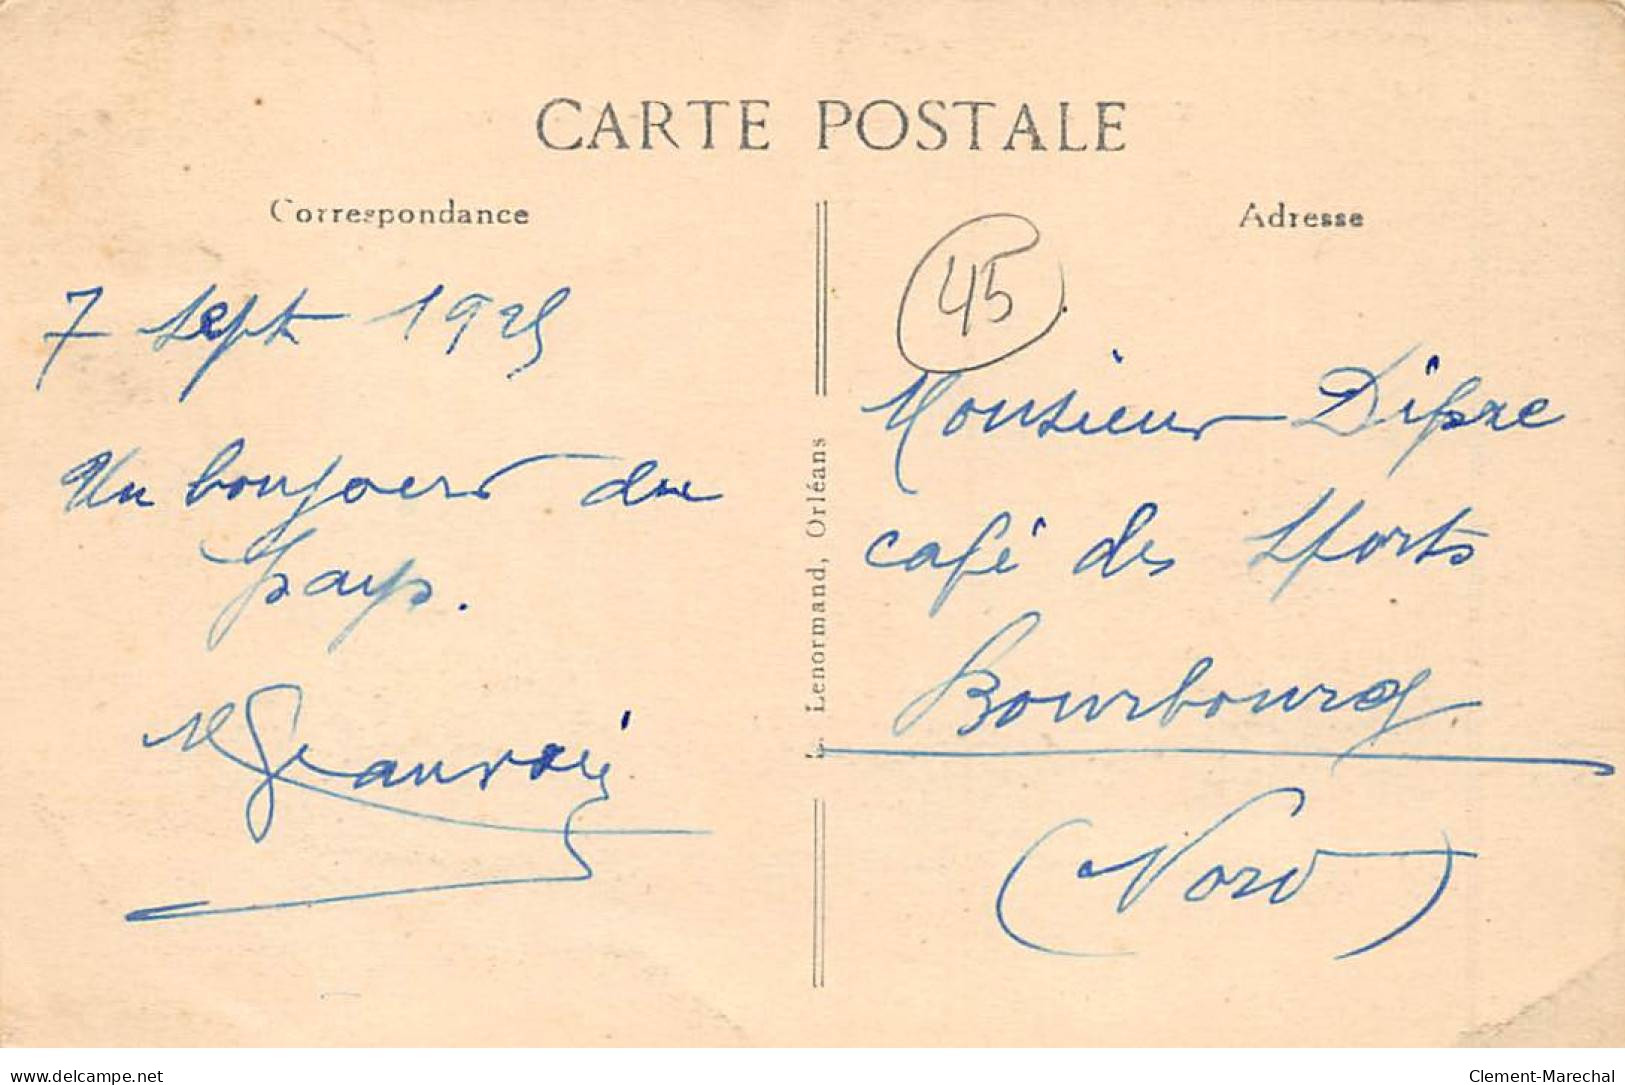 CARTE POSTALE
Correspondance
Adresse
45
7 Sept 1925
Un bonjour du
pays.
L. Lenormand, Orléans
Monsieur Dipre
café des Sports
Bourbourg
(Nord)
delcampe.net
Clement-Marechal